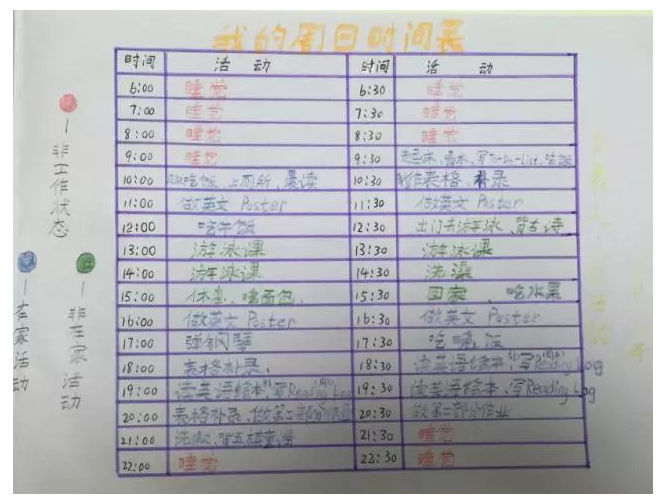 我的周日时间表
时间 活动 时间 活动
6:00 睡觉 6:30 睡觉
7:00 睡觉 7:30 睡觉
8:00 睡觉 8:30 睡觉
9:00 睡觉 9:30 起床、喝水、写To-Do-List、
10:00 吃饭、上厕所、晨读 10:30 制作表格、补录
11:00 做英文Poster 11:30 做英文Poster
12:00 吃午饭 12:30 出门去游泳、背古诗
13:00 游泳课 13:30 游泳课
14:00 游泳课 14:30 洗澡
15:00 休息、啃面包、 15:30 回家、吃水果
16:00 做英文Poster 16:30 做英文Poster
17:00 弹钢琴 17:30 吃晚饭
18:00 表格补录、 18:30 读英语绘本、写Reading Log
19:00 读英语绘本、写Reading Log 19:30 读英语绘本、写Reading Log
20:00 表格补录、做第二部分作业 20:30 做第二部分作业
21:00 洗漱、 21:30 睡觉
22:00 睡觉 22:30 睡觉
非工作状态
在家活动
非在家活动